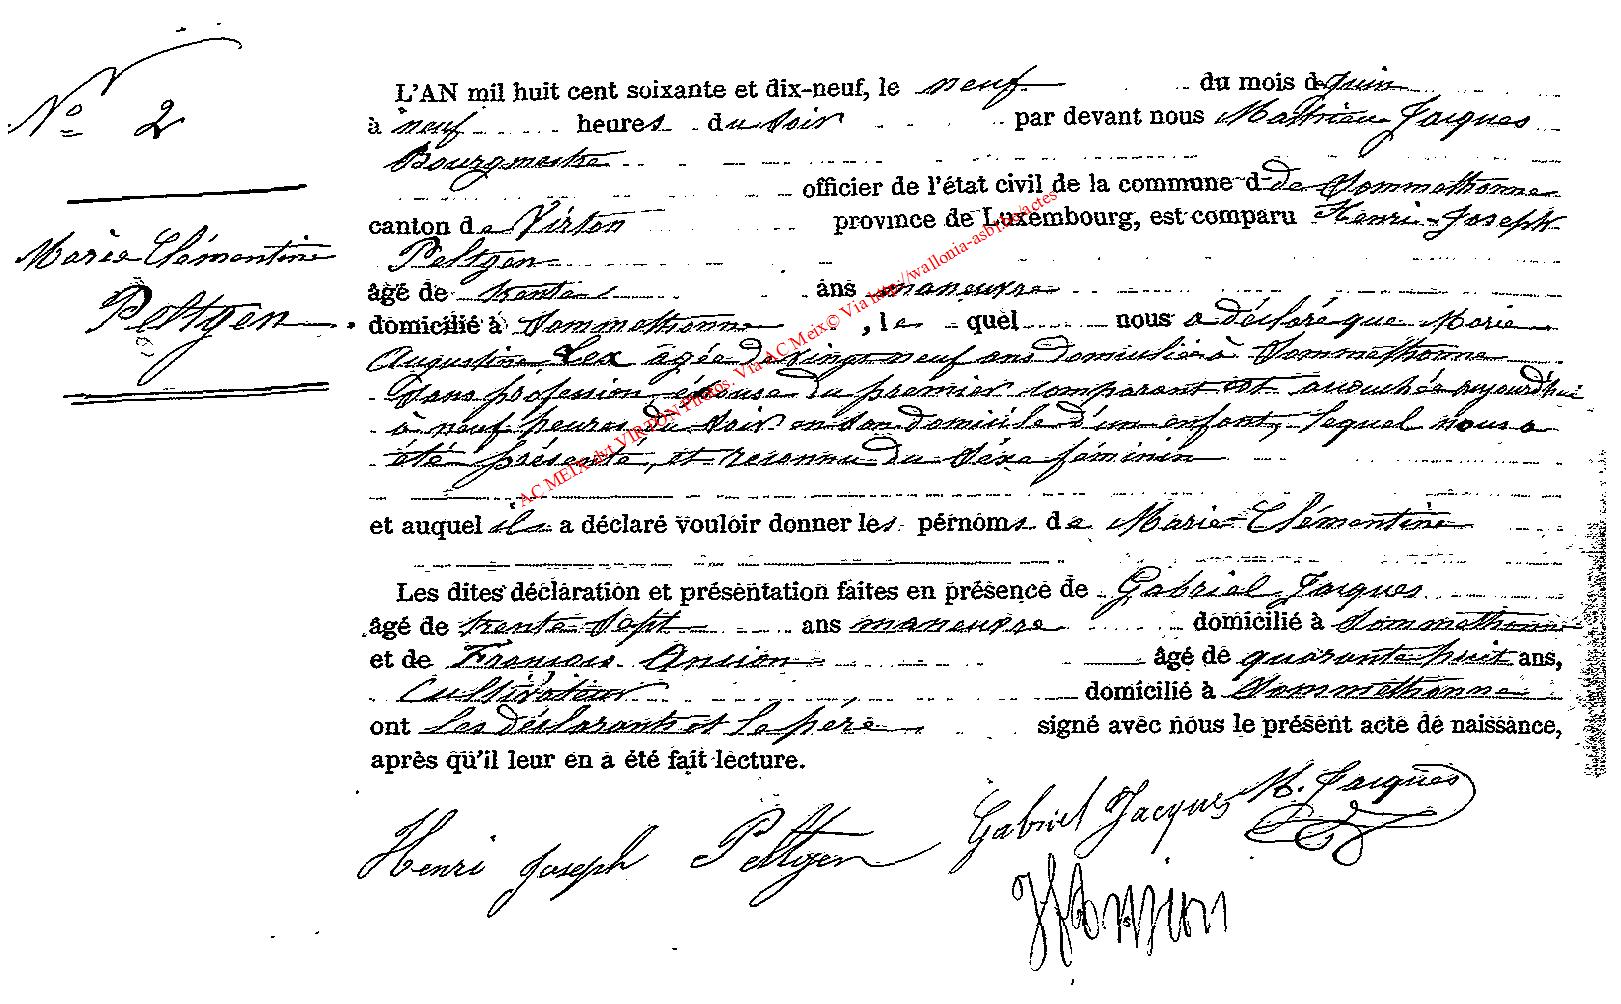 Nº 2
Marie Clémentine
Peltgen
L'AN mil huit cent soixante et dix-neuf, le neuf du mois de Juin
à neuf heures du Soir par devant nous Mathieu Jacques
Bourgmestre
officier de l'état civil de la commune d de Sommethonne
canton de Virton province de Luxembourg, est comparu Henri-Joseph
Peltgen
âgé de trente ans maneuvre
domicilié à Sommethonne, le quel nous a déclaré que Marie
Augustine Lex agée de vingt neuf ans domiciliée à Sommethonne
Sans profession, épouse du premier comparant est accouchée aujourd'hui
à neuf heures du Soir en son domicile d'un enfant, lequel nous a
été présenté, et reconnu du Séxe féminin
et auquel il a déclaré vouloir donner les pérnoms de Marie Clémentine
Les dites déclaration et présentation faites en présence de Gabriel Jacques
âgé de trente Sept ans maneuvre domicilié à Sommethonne
et de François Ansion âgé de quarante huit ans,
Cultivateur domicilié à Sommethonne
ont les déclarants et le père signé avec nous le présent acte de naissance,
après qu'il leur en a été fait lecture.
Henri Joseph Peltgen Gabriel Jacques M. Jacques
AC MEIX dvt VIRTON Photos. Via AC Meix © Via http://wallonia-asbl.be/actes